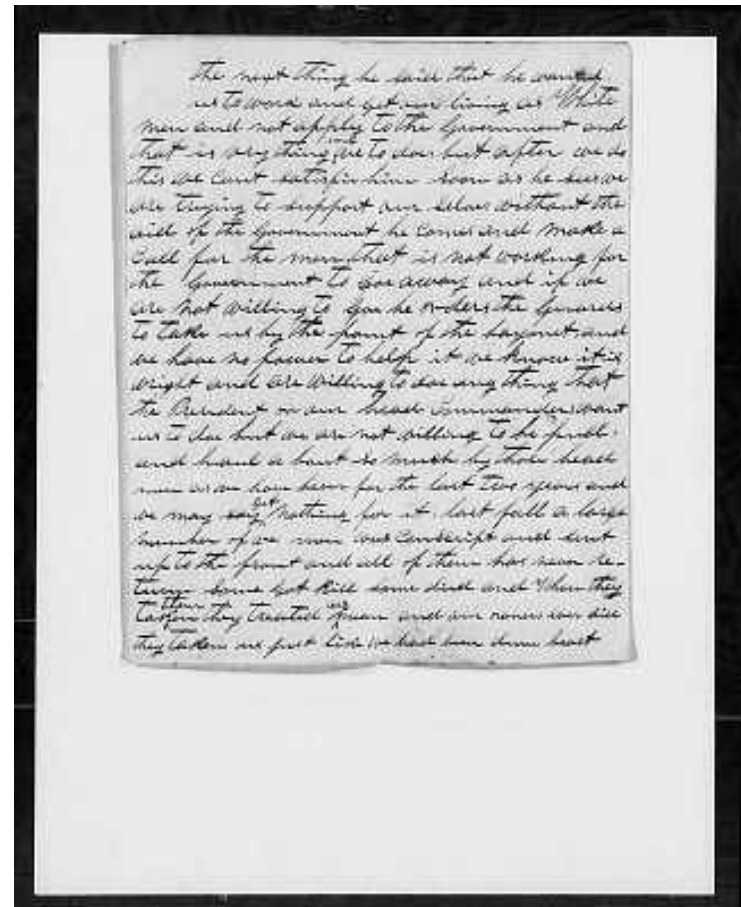 the next thing he said that he wanted
us to work and get our living as White
men and not apply to the Government and
that is vry thing we want to doe but after we do
this we cant satisfie him soon as he sees we
are trying to support our selves without the
aid of the Government he comes and make a
Call for the men that is not working for
the Government to Goe away and if we
are not willing to Goe he orders the Guards
to take us by the point of the bayonet and
we have no power to help it we know it is
wright and are willing to doe any thing that
the President or our head Commanders want
us to doe but we are not willing to be pull
and haul a bout so much by those head
men as we have been for the last two years and
we may say get Nothing for it last fall a large
number of we men was Conscript and sent
up to the front and all of them has never re-
turn some Got Kill some died and When they
taken them they treated us mean and our owners ever did
they taken us just like we had been dum beast